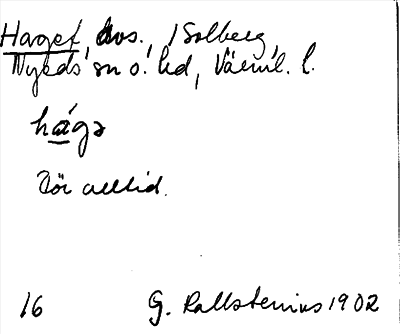 Haget, avs., i Solberg,
Nyeds sn o. hd, Värml. l.
hágə
Bör alltid.
16 G. Kallstenius 1902